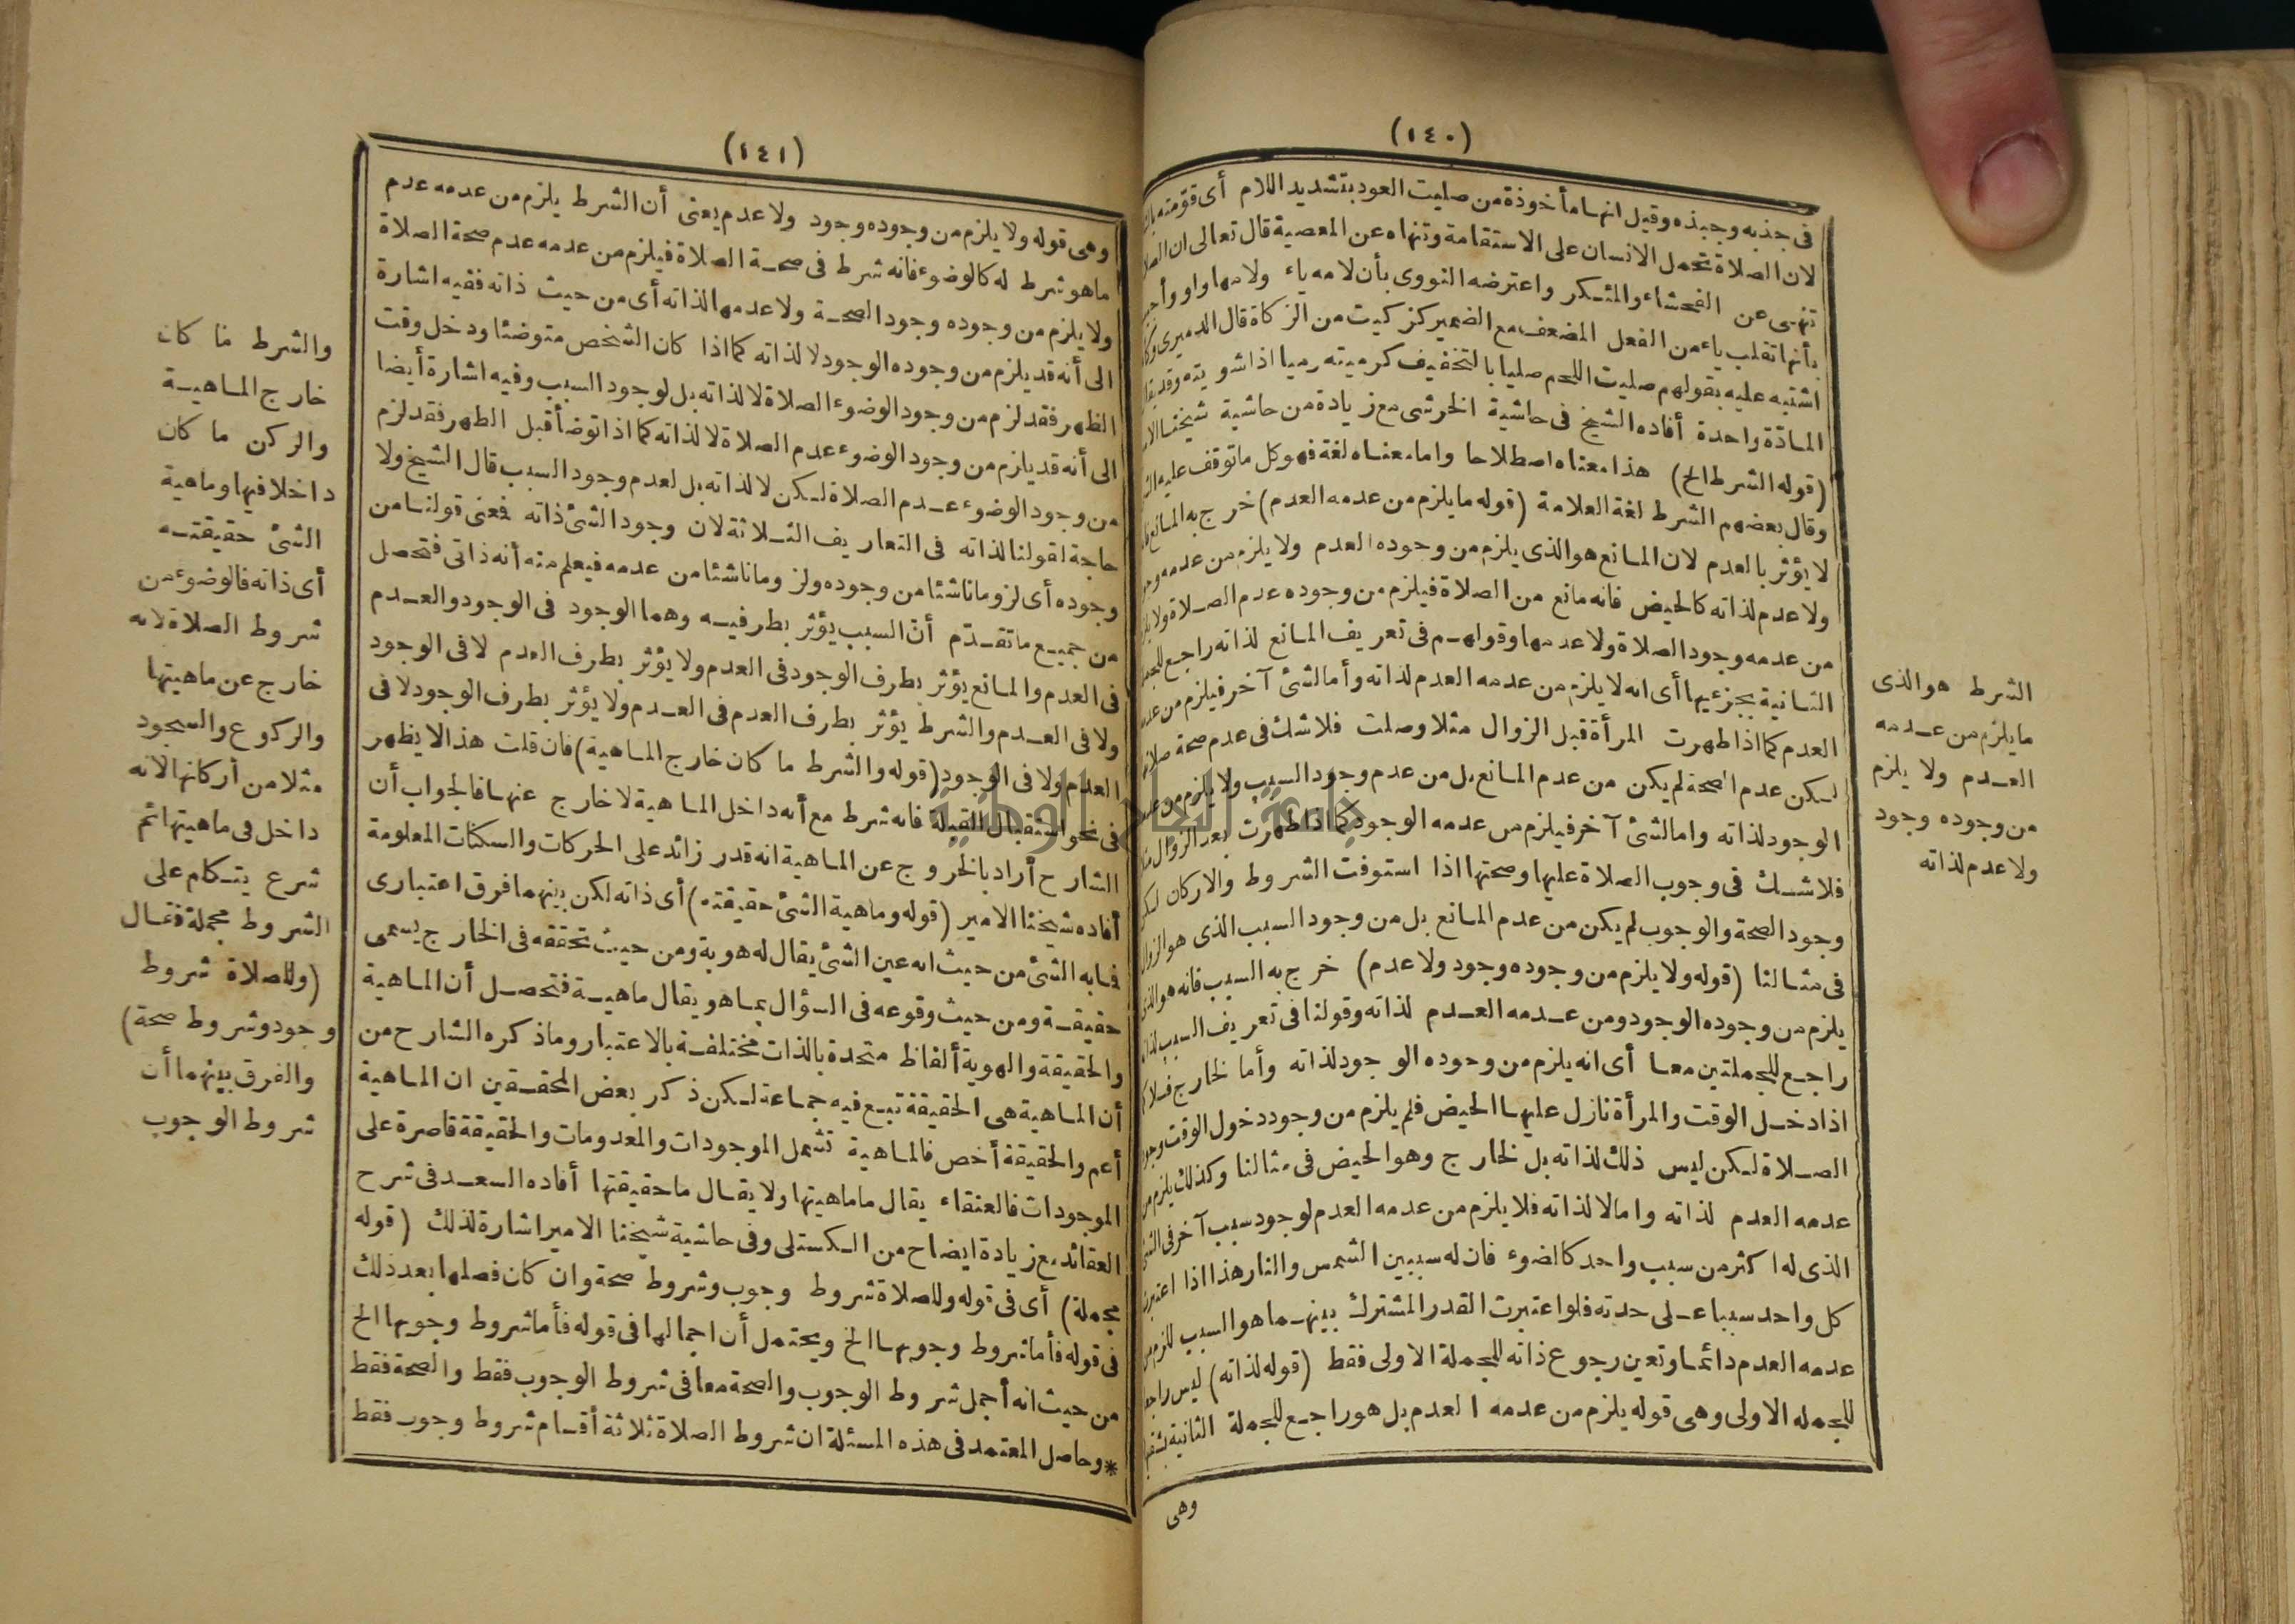 (١٤٠)
فى جذبه وجبذه وقيل انها مأخوذة من صليت العود بتشديد اللام أى قومته
لان الصلاة تحمل الانسان على الاستقامة وتنهاه عن المعصية قال تعالى ان
تنهى عن الفحشاء والمنكر واعترضه النووى بأن لامه ياء ولامها واو
بأنها تقلب ياء من الفعل المضعف مع الضمير كزكيت من الزكاة قال الدميرى
اشتبه عليه بقولهم صليت اللحم صليا بالتخفيف كرميته رميا اذا شويته وقد
المادّة واحدة أفاده الشيخ فى حاشية الخرشى مع زيادة من حاشية شيخنا
(قوله الشرط الخ) هذا معناه اصطلاحا وامامعناه لغة فهو كل ما توقف عليه
وقال بعضهم الشرط لغة العلامة (قوله ما يلزم من عدمه العدم) خرج به المانع
لا يؤثر بالعدم لان المانع هو الذى يلزم من وجوده العدم ولا يلزم من عدمه
ولا عدم لذاته كالحيض فانه مانع من الصلاة فيلزم من وجوده عدم الصلاة
من عدمه وجود الصلاة ولا عدمها وقولهم فى تعريف المانع لذاته راجع
الثانية بجزءيها أى انه لا يلزم من عدمه العدم لذاته وأما لشئ آخر فيلزم من
العدم كما اذا طهرت المرأة قبل الزوال مثلا وصلت فلا شك فى عدم صحة
لكن عدم الصحة لم يكن من عدم المانع بل من عدم وجود السبب ولا يلزم من
الوجود لذاته واما لشئ آخر فيلزم من عدمه الوجود كما اذا طهرت بعد الزوال
فلا شك فى وجوب الصلاة عليها وصحتها اذا استوفت الشروط والاركان
وجود الصحة والوجوب لم يكن من عدم المانع بل من وجود السبب الذى هو الزوال
فى مثالنا (قوله ولا يلزم من وجوده وجود ولا عدم) خرج به السبب فانه هو
يلزم من وجوده الوجود ومن عدمه العدم لذاته وقولنا فى تعريف السبب
راجع للجملتين معا أى انه يلزم من وجوده الوجود لذاته وأما لخارج فلا
اذا دخل الوقت والمرأة نازل عليها الحيض فلم يلزم من وجود دخول الوقت
الصلاة لكن ليس ذلك لذاته بل لخارج وهو الحيض فى مثالنا وكذلك يلزم
عدمه العدم لذاته واما لا لذاته فلا يلزم من عدمه العدم لوجود سبب آخر فى
الذى له اكثر من سبب واحد كالضوء فان له سببين الشمس والنار هذا اذا
كل واحد سببا على حدته فلو اعتبرت القدر المشترك بينهما هو السبب للزم
عدمه العدم دائما وتعين رجوع ذاته للجملة الاولى فقط (قوله لذاته) ليس
للجملة الاولى وهى قوله يلزم من عدمه العدم بل هو راجع للجملة الثانية
وهى
الشرط هو الذى
ما يلزم من عدمه
العدم ولا يلزم
من وجوده وجود
ولا عدم لذاته
(١٤١)
وهى قوله ولا يلزم من وجوده وجود ولا عدم يعنى أن الشرط يلزم من عدمه عدم
ما هو شرط له كالوضوء فانه شرط فى صحة الصلاة فيلزم من عدمه عدم صحة الصلاة
ولا يلزم من وجوده وجود الصحة ولا عدمها لذاته أى من حيث ذاته ففيه اشارة
الى أنه قد يلزم من وجوده الوجود لا لذاته كما اذا كان الشخص متوضئا ودخل وقت
الظهر فقد لزم من وجود الوضوء الصلاة لا لذاته بل لوجود السبب وفيه اشارة أيضا
الى أنه قد يلزم من وجود الوضوء عدم الصلاة لا لذاته كما اذا توضأ قبل الظهر فقد لزم
من وجود الوضوء عدم الصلاة لكن لا لذاته بل لعدم وجود السبب قال الشيخ ولا
حاجة لقولنا لذاته فى التعاريف الثلاثة لان وجود الشئ ذاته فمعنى قولنا من
وجوده أى لزوما ناشئا من وجوده ولزوما ناشئا من عدمه فيعلم منه أنه ذاتى فتحصل
من جميع ما تقدّم أن السبب يؤثر بطرفيه وهما الوجود فى الوجود والعدم
فى العدم والمانع يؤثر بطرف الوجود فى العدم ولا يؤثر بطرف العدم لا فى الوجود
ولا فى العدم والشرط يؤثر بطرف العدم فى العدم ولا يؤثر بطرف الوجود لا فى
العدم ولا فى الوجود (قوله والشرط ما كان خارج الماهية) فان قلت هذا لا يظهر
فى نحو استقبال القبلة فانه شرط مع أنه داخل الماهية لا خارج عنها فالجواب أن
الشارح أراد بالخروج عن الماهية انه قدر زائد على الحركات والسكنات المعلومة
أفاده شيخنا الامير (قوله وماهية الشئ حقيقته) أى ذاته لكن بينهما فرق اعتبارى
فما به الشئ من حيث انه عين الشئ يقال له هوية ومن حيث تحققه فى الخارج يسمى
حقيقة ومن حيث وقوعه فى السؤال بما هو يقال ماهية فتحصل أن الماهية
والحقيقة والهوية ألفاظ متحدة بالذات مختلفة بالاعتبار وما ذكره الشارح من
أن الماهية هى الحقيقة تبع فيه جماعة لكن ذكر بعض المحققين ان الماهية
أعم والحقيقة أخص فالماهية تشمل الموجودات والمعدومات والحقيقة قاصرة على
الموجودات فالعنقاء يقال ما ماهيتها ولا يقال ما حقيقتها أفاده السعد فى شرح
العقائد مع زيادة ايضاح من الكستلى وفى حاشية شيخنا الامير اشارة لذلك (قوله
مجملة) أى فى قوله وللصلاة شروط وجوب وشروط صحة وان كان فصلها بعد ذلك
فى قوله فأما شروط وجوبها الخ ويحتمل أن اجمالها فى قوله فأما شروط وجوبها الخ
من حيث انه أجمل شروط الوجوب والصحة معا فى شروط الوجوب فقط والصحة فقط
* وحاصل المعتمد فى هذه المسئلة ان شروط الصلاة ثلاثة أقسام شروط وجوب فقط
والشرط ما كان
خارج الماهية
والركن ما كان
داخلا فيها وماهية
الشئ حقيقته
أى ذاته فالوضوء من
شروط الصلاة لانه
خارج عن ماهيتها
والركوع والسجود
مثلا من أركانها لانه
داخل فى ماهيتها ثم
شرع يتكلم على
الشروط مجملة فقال
(وللصلاة شروط
وجود وشروط صحة)
والفرق بينهما أن
شروط الوجوب